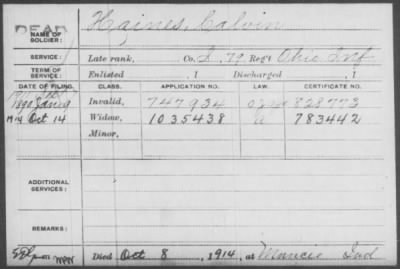 DEAD
NAME OF SOLDIER: Haines, Calvin
SERVICE: Late rank, Co. I, 79 Reg't Ohio Inf
TERM OF SERVICE: Enlisted , 1 Discharged , 1
DATE OF FILING. CLASS. APPLICATION NO. LAW. CERTIFICATE NO.
Invalid, 747,934 828773
1914 Oct 14 Widow, 1035438 a 783442
Minor,
ADDITIONAL SERVICES:
REMARKS:
Died Oct 8, 1914, at Muncie Ind